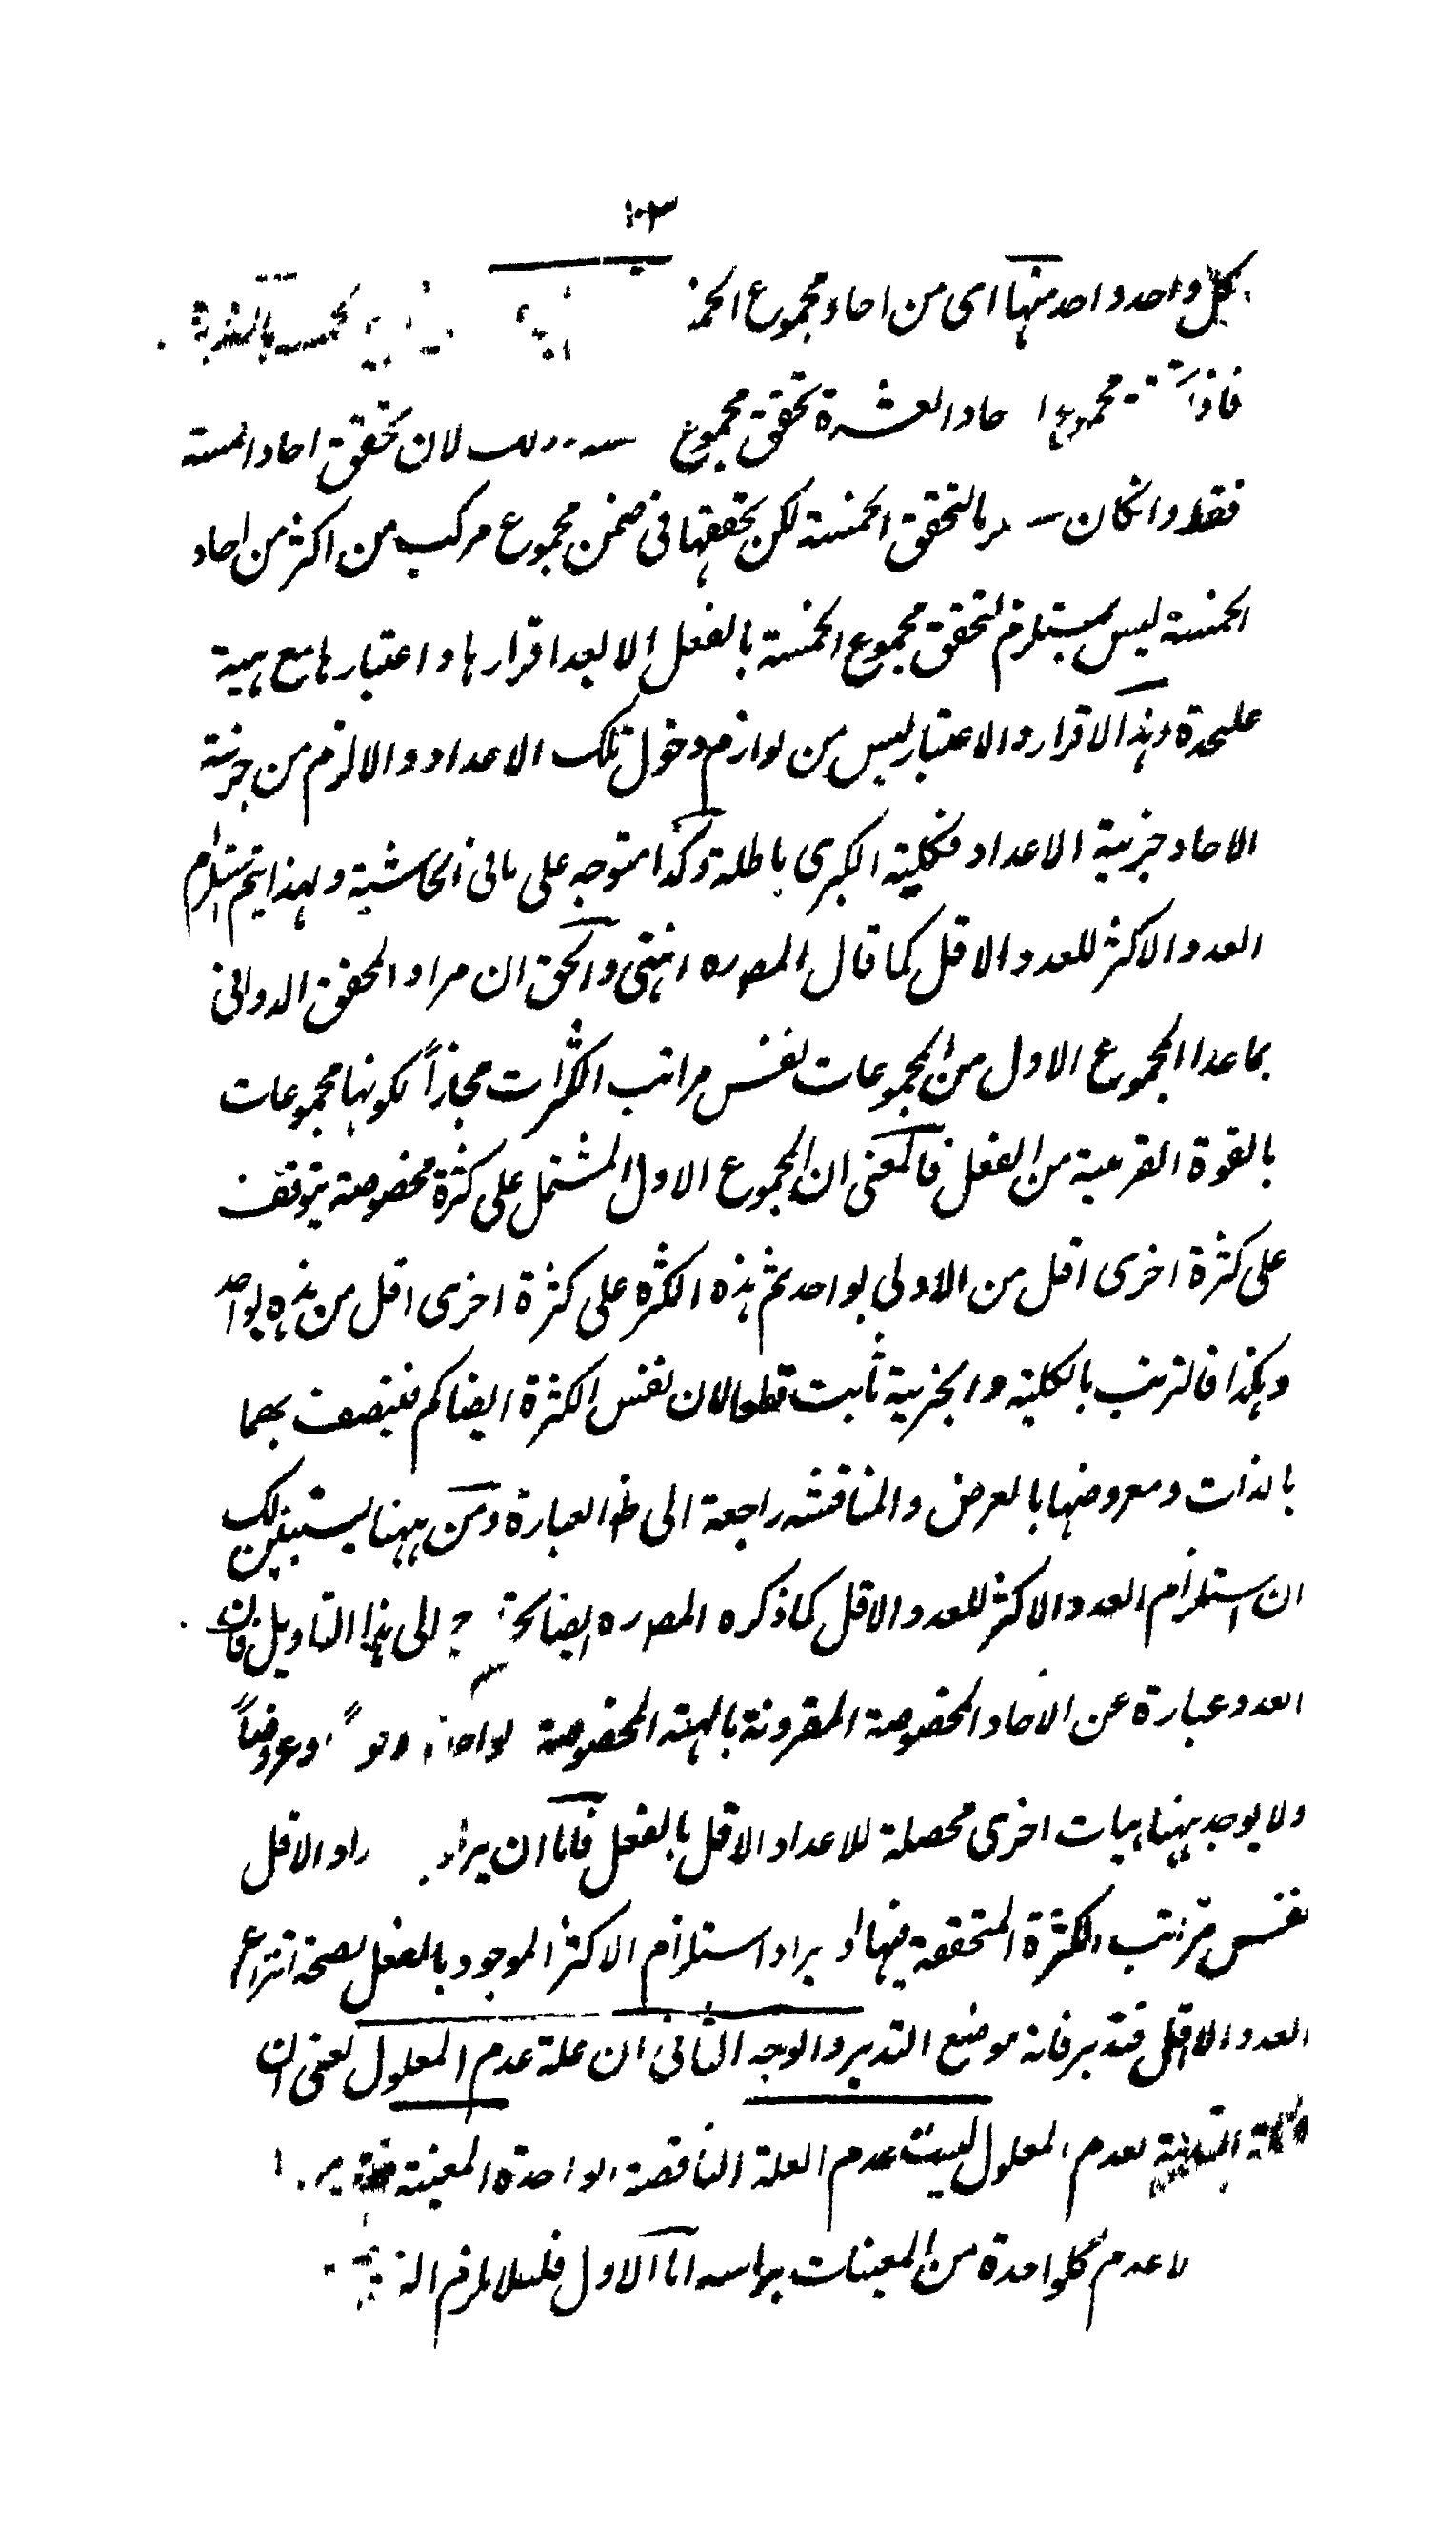 ١٠٣
بكل واحد واحد منها اى من احاد مجموع الخمسة
مجموع احاد العشرة تحقق مجموع لان تحقق احاد الخمسة
فقط وانكان بالتحقق الخمسة لكن تحققها فى ضمن مجموع مركب من اكثر من احاد
الخمسة ليس بمستلزم لتحقق مجموع الخمسة بالفعل الا بعد اقرارها و اعتبارها مع هيئة
عليحدة وهذا الاقرار والاعتبار ليس من لوازم دخول تلك الاعداد والا لزم من جزئية
الاحاد جزئية الاعداد فكلية الكبرى باطلة وكذا متوجه على ما فى الحاشية ولهذا يتم استلزام
العدد الاكثر للعدد الاقل كما قال المصره انتهى والحق ان مراد المحقق الدوانى
بما عدا المجموع الاول من المجموعات نفس مراتب الكثرات مجازاً لكونها مجموعات
بالقوة القريبة من الفعل فالمعنى ان المجموع الاول المشتمل على كثرة مخصوصة يتوقف
على كثرة اخرى اقل من الاولى بواحد ثم هذه الكثرة على كثرة اخرى اقل من هذه بواحد
وهكذا فالترتب بالكلية والجزئية ثابت قطعا لان نفس الكثرة ايضا كم فيتصف بهما
بالذات ومعروضها بالعرض والمناقشة راجعة الى ظ العبارة ومن ههنا يستبين لك
ان استلزام العدد الاكثر للعدد الاقل كما ذكره المصره ايضا الى هذا التاويل فان
العدد عبارة عن الاحاد المخصوصة المقرونة بالهيئة المخصوصة وعروضاً
ولا يوجد ههنا هيات اخرى محصلة للاعداد الاقل بالفعل فاما ان يراد الاقل
نفس مراتب الكثرة المتحققة فيها او يراد استلزام الاكثر الموجود بالفعل لصحة انتزاع
العدد الاقل فتدبر فانه موضع التدبر والوجه الثانى ان علة عدم المعلول يعنى ان
لعدم المعلول ليست عدم العلة الناقصة الواحدة المعينة
عدم كلواحدة من المعينات براسه اما الاول فلئلا يلزم